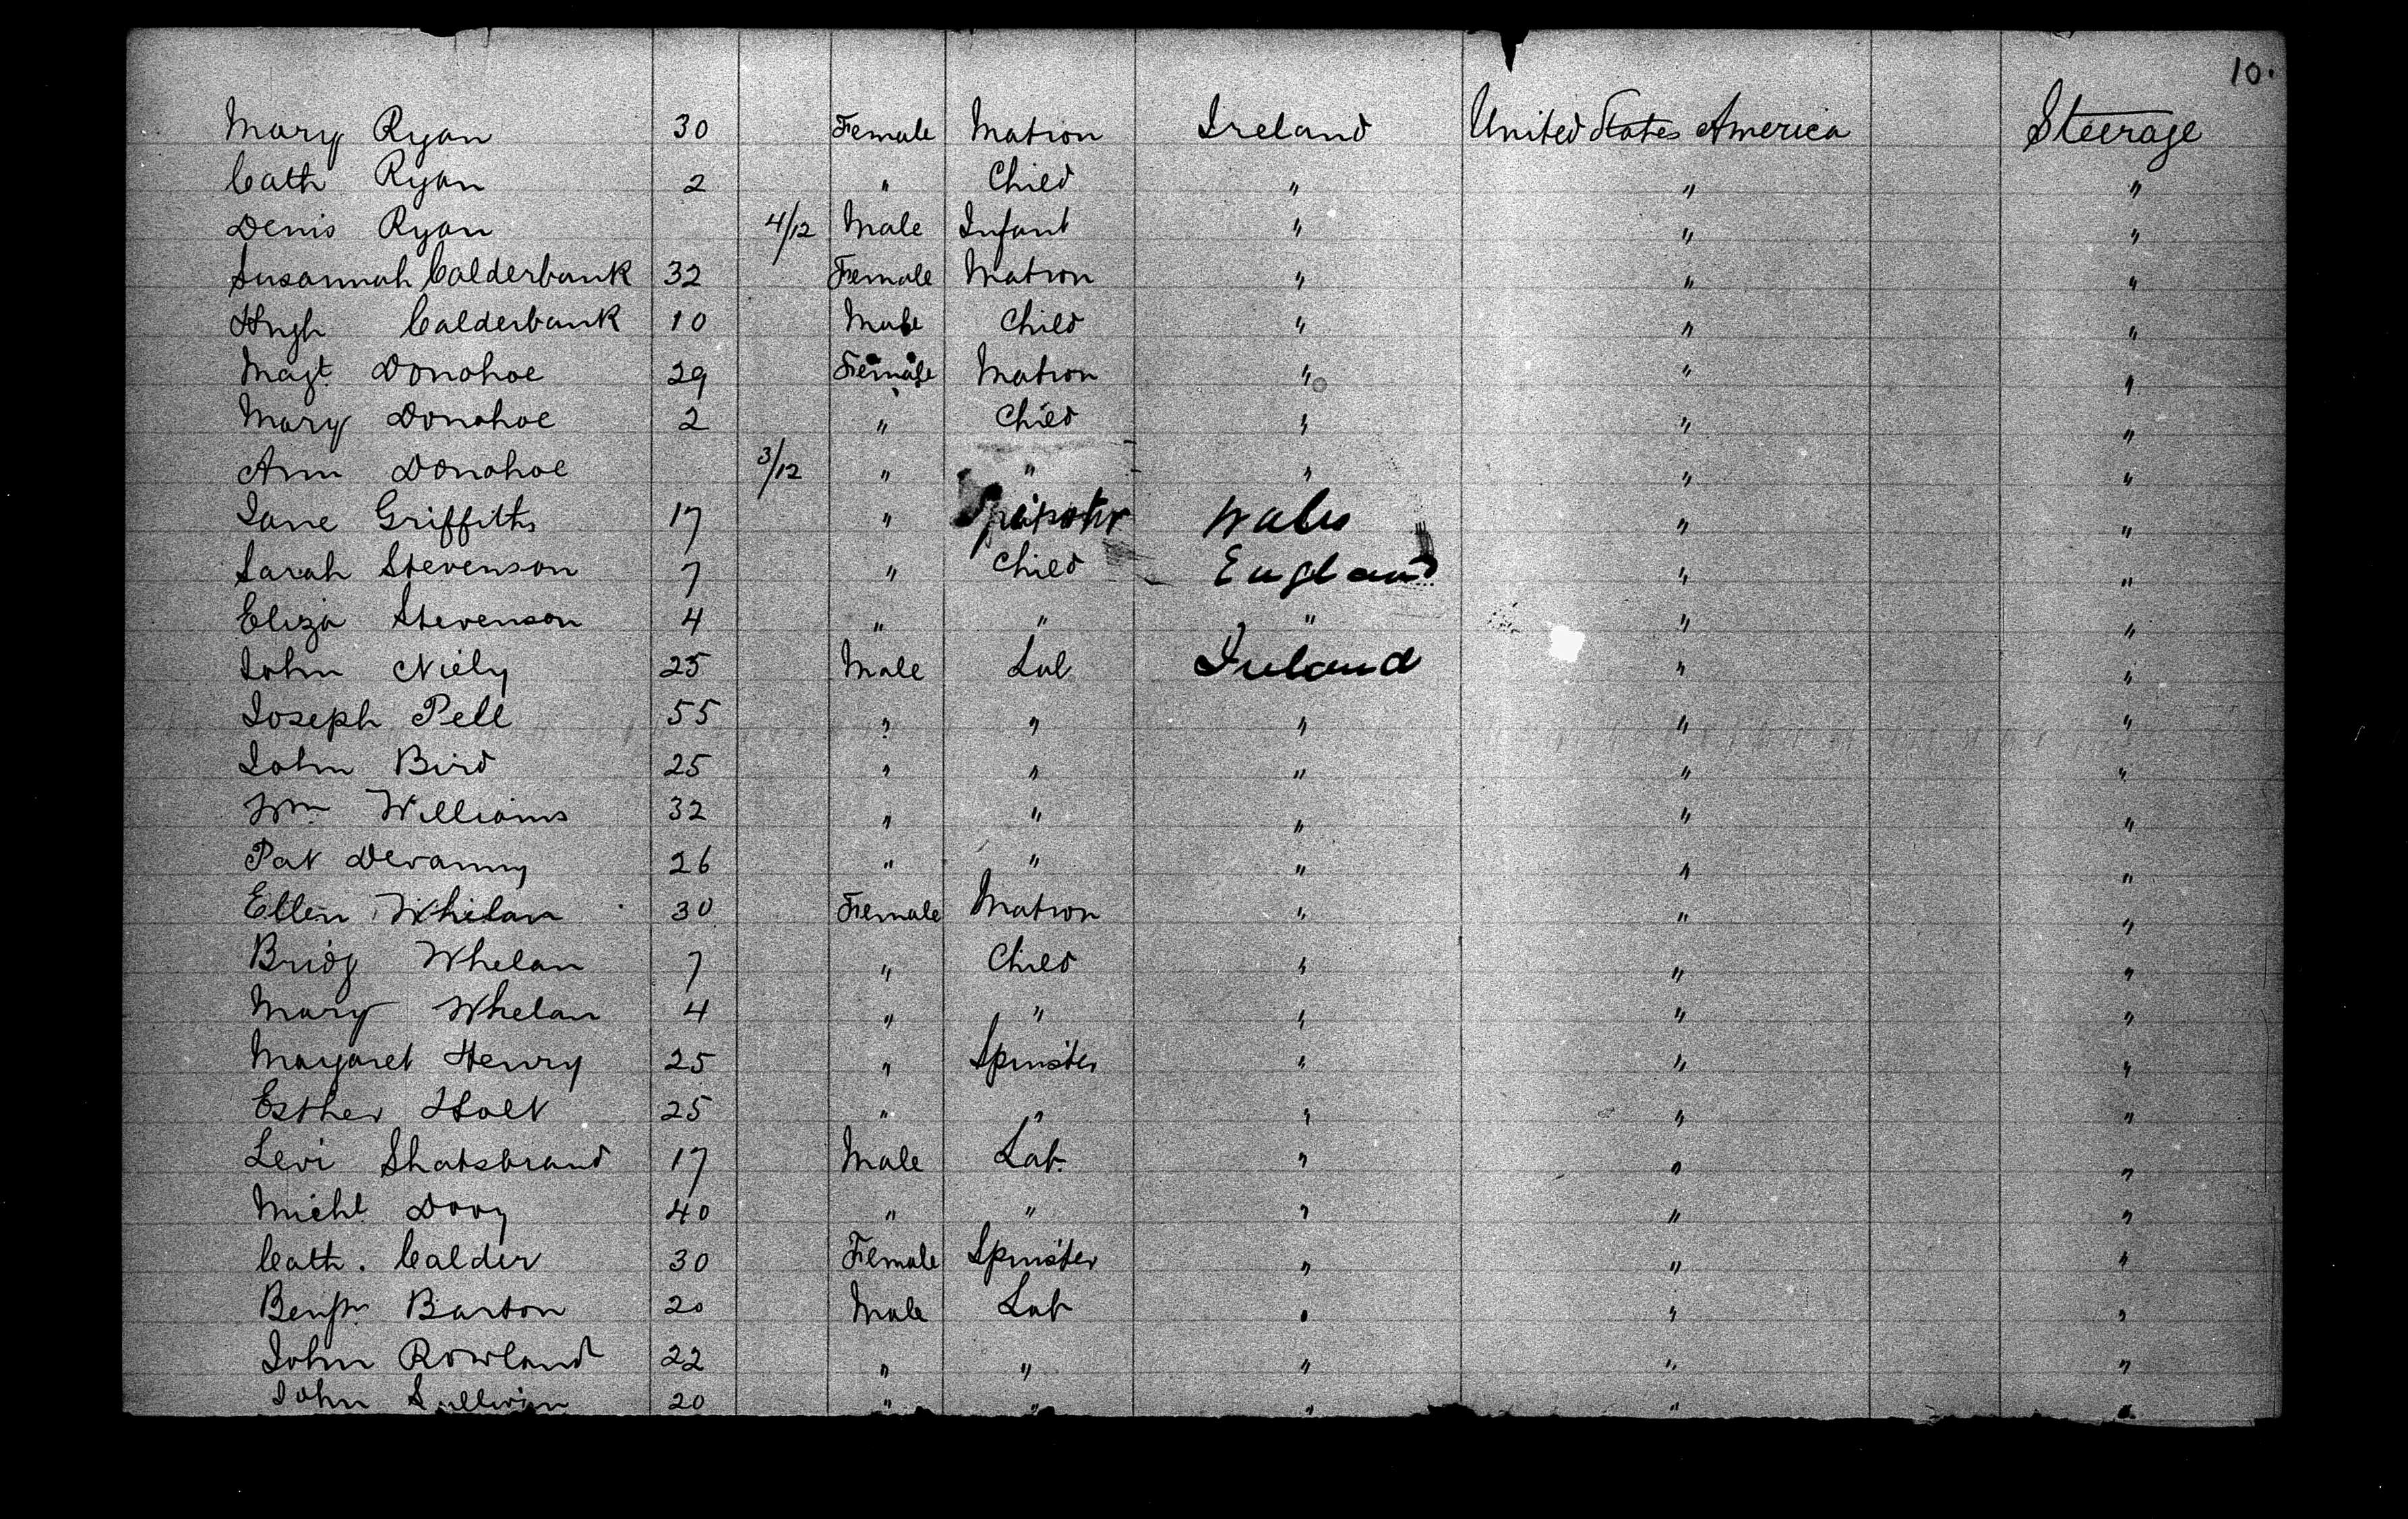 10.
Mary Ryan 30 Female Matron Ireland United States America Steerage
Cath Ryan 2 " Child " " "
Denis Ryan 4/12 Male Infant " " "
Susannah Calderbank 32 Female Matron " " "
Hugh Calderbank 10 Male Child " " "
Magt. Donohoe 29 Female Matron " " "
Mary Donohoe 2 " Child " " "
Ann Donohoe 3/12 " " " " "
Jane Griffiths 17 " Spinster Wales " "
Sarah Stevenson 7 " Child England " "
Eliza Stevenson 4 " " " " "
John Niely 25 Male Lab Ireland " "
Joseph Pell 55 " " " " "
John Bird 25 " " " " "
Wm Williams 32 " " " " "
Pat Devanny 26 " " " " "
Ellen Whelan 30 Female Matron " " "
Bridg Whelan 7 " Child " " "
Mary Whelan 4 " " " " "
Margaret Henry 25 " Spinster " " "
Esther Holt 25 " " " " "
Levi 17 Male Lab. " " "
Michl. 40 " " " " "
Cath. Calder 30 Female Spinster " " "
Benjn. Barton 20 Male Lab " " "
John Rowland 22 " " " " "
John Sullivan 20 " " " " "